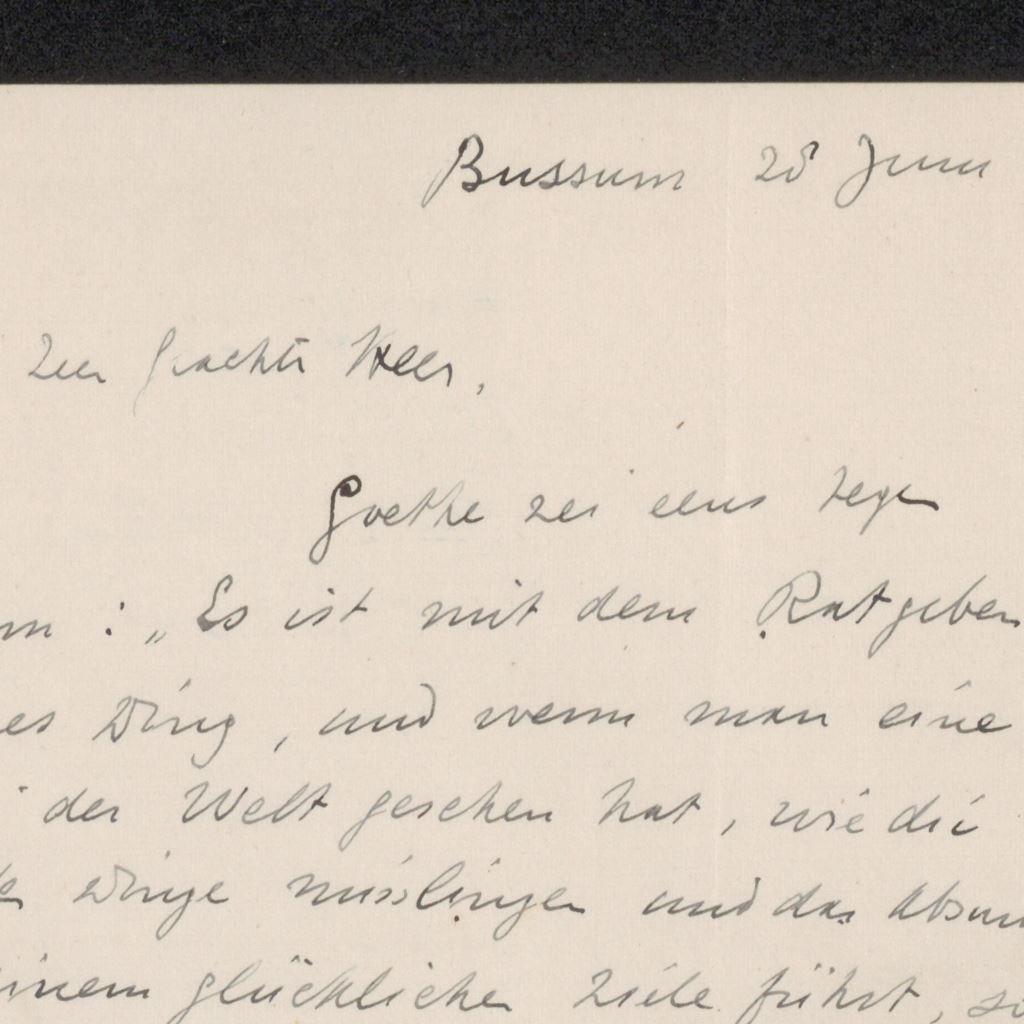 Bussum 28 Juni
Zeer Geachte Heer,
Goethe zei eens tegen
: „Es ist mit dem Ratgeben
es Ding, und wenn man eine
der Welt gesehen hat, wie die
Dinge misslingen und das Absur
inem glücklichen Ziele führt, so